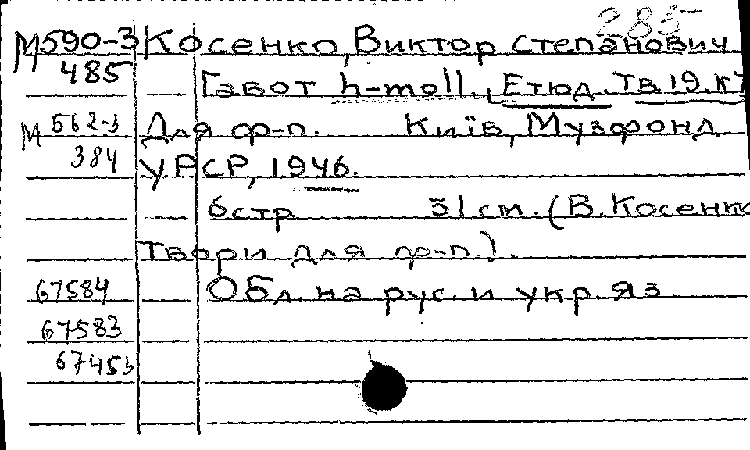 285
М590-3 Косенко, Виктор Степанович
485 Гавот h-moll., Етюд. Тв 19. №7
М 562-3 Для ф-п. Київ, Музфонд
384 УРСР, 1946.
6стр 31 см. (В. Косенко
Твори для ф-п.).
67584 Обл. на рус. и укр. яз
67583
67453